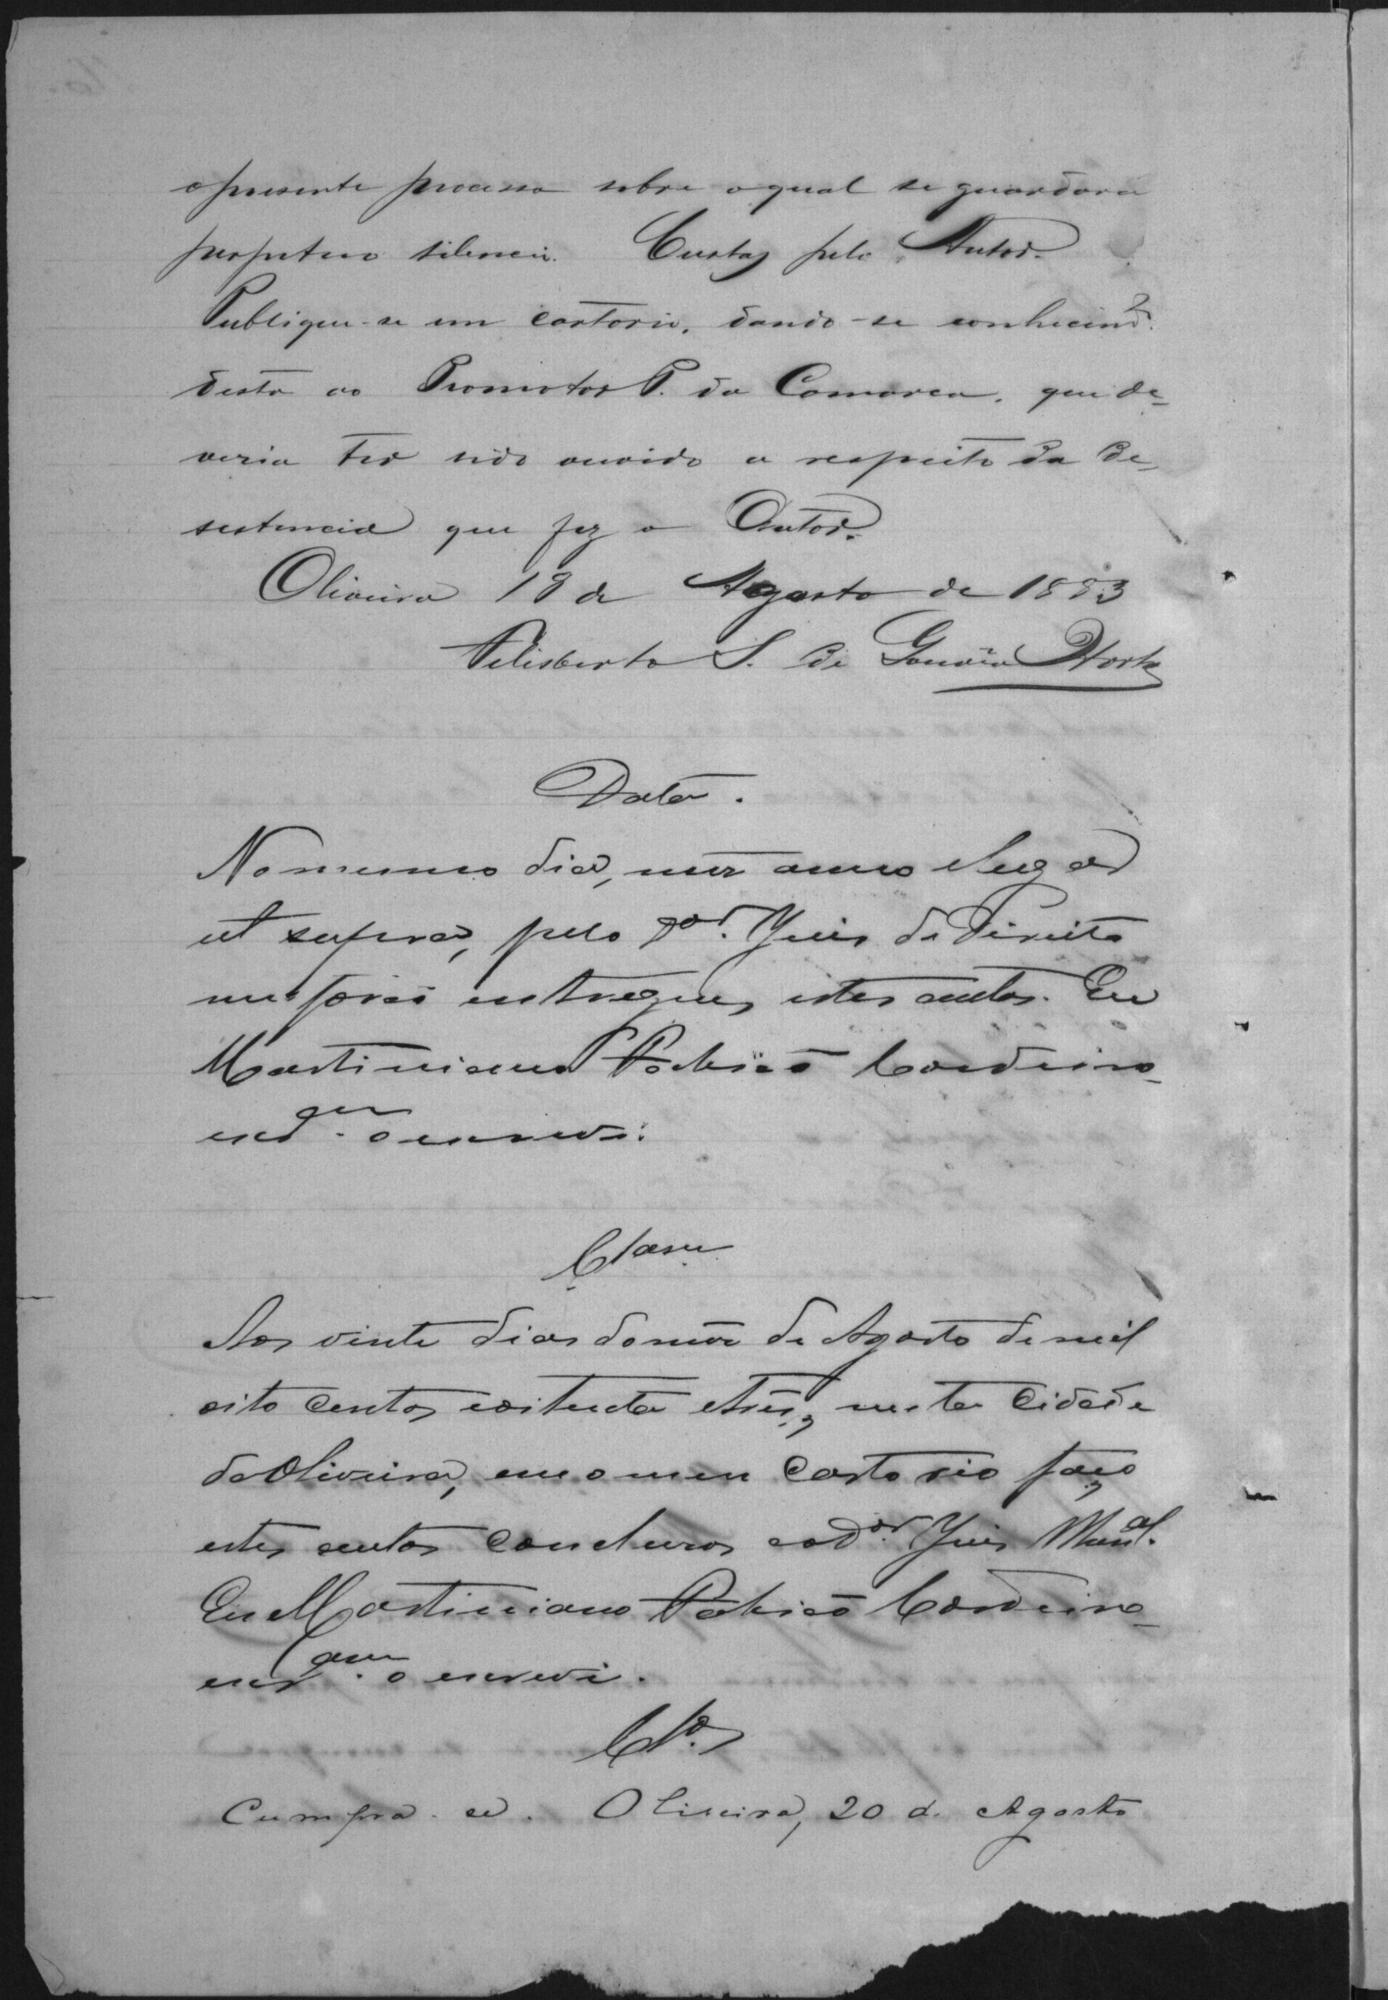 o presente processo sobre o qual se guardará
perpetuo silencio. Custas pelo Autor.
Publique-se em cartorio, dando-se conhecim.to
desta ao Promotor P. da Comarca, que de-
veria ter sido ouvido a respeito da de-
sistencia que fez o Autor.
Oliveira 18 de Agosto de 1883
Felisberto S. de Gouvêa Horta
Data.
No mesmo dia, mez anno e lugar
ut supra, pelo Dor. Juis de Direito
me forão entregues estes autos. Eu
Martiniano Patricio Cordeiro
escr. o escrevi.
Clsam
Aos vinte dias do mez de Agosto de mil
oito centos e oitenta e tres, nesta Cidade
da Oliveira, em o meu Cartorio faço
estes autos conclusos ao Dor. Juis Mun.al
Eu Martiniano Patricio Cordeiro
escr. o escrevi.
Clos
Cumpra-se. Oliveira, 20 de Agosto